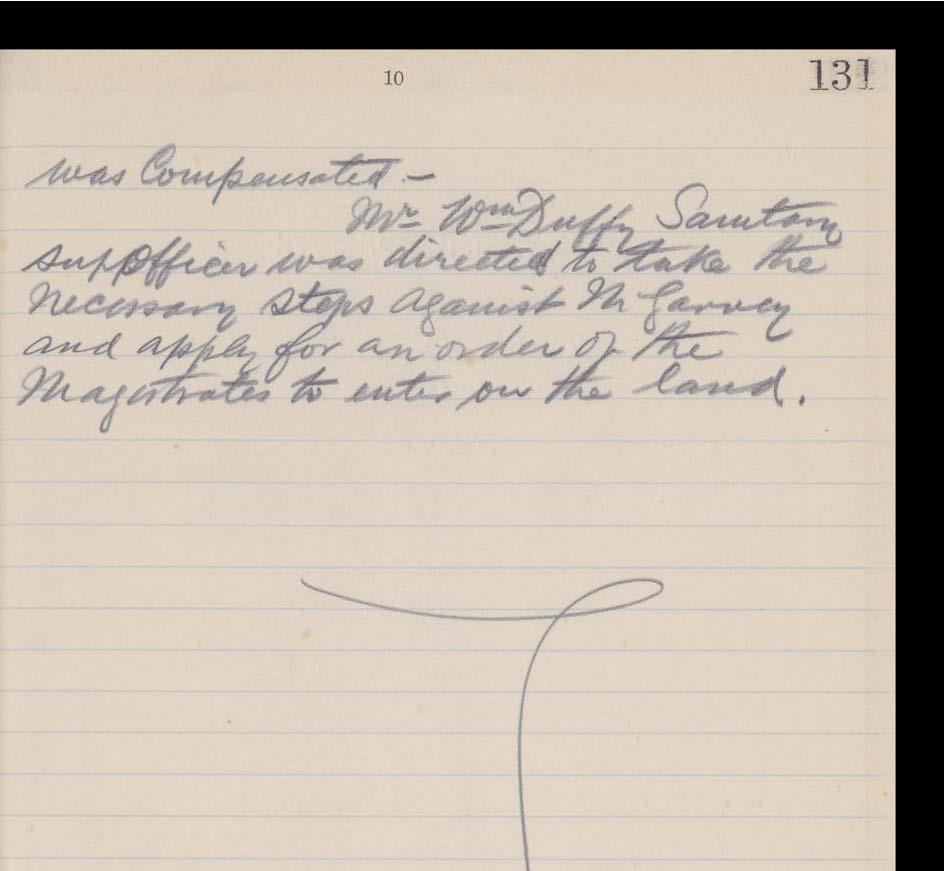 10
131
was Compensated —
Mr Wm Duffy Sanitary
supOfficer was directed to take the
necessary steps against McGarvey
and apply for an order of the
Magistrates to enter on the land.